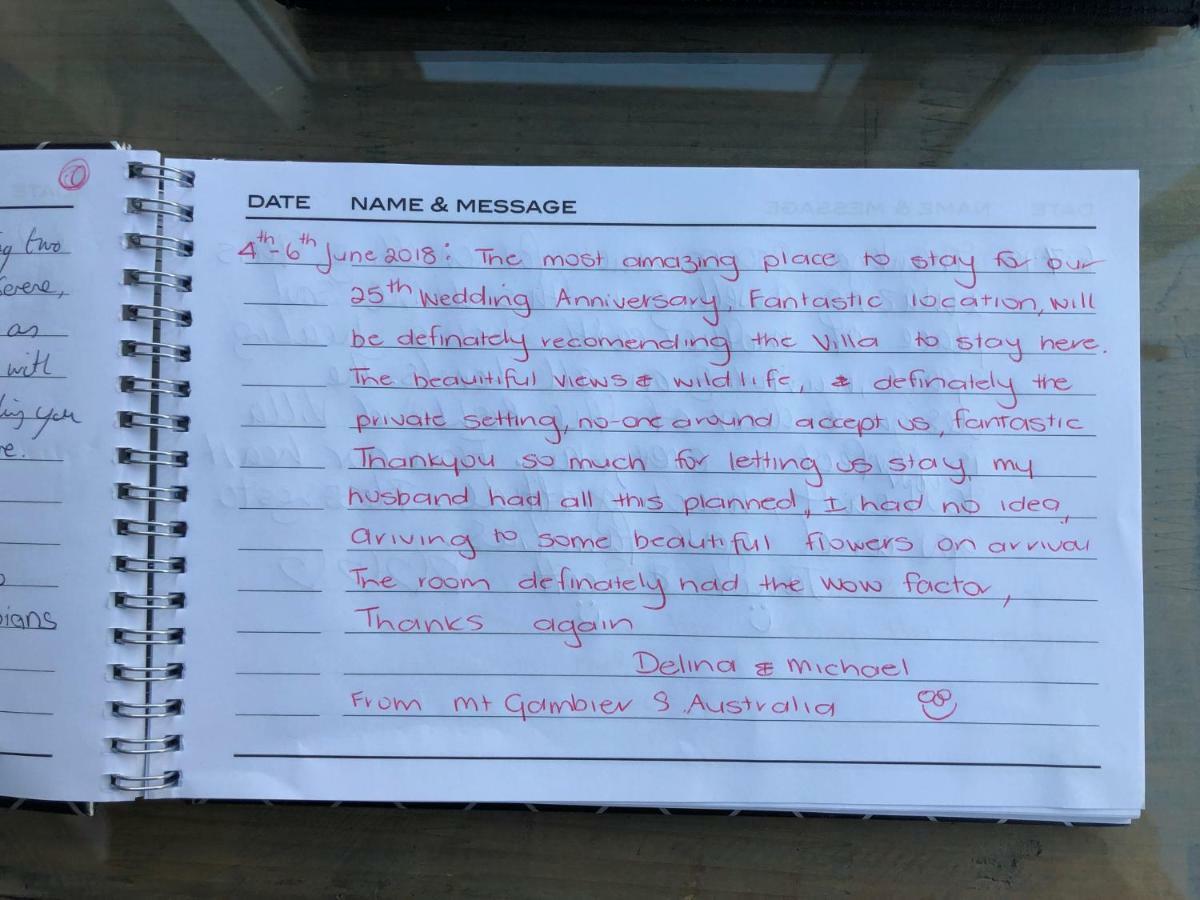 DATE NAME & MESSAGE
4th-6th June 2018: The most amazing place to stay for our
25th Wedding Anniversary. Fantastic location, will
be definately recomending the Villa to stay here.
The beauitiful views & wildlife, & definately the
private setting, no-one around accept us, fantastic
Thankyou so much for letting us stay, my
husband had all this planned, I had no idea,
ariving to some beautiful flowers on arrival
The room definately had the wow factor,
Thanks again
Delina & Michael
From Mt Gambier S.Australia
two
serene,
as
with
you